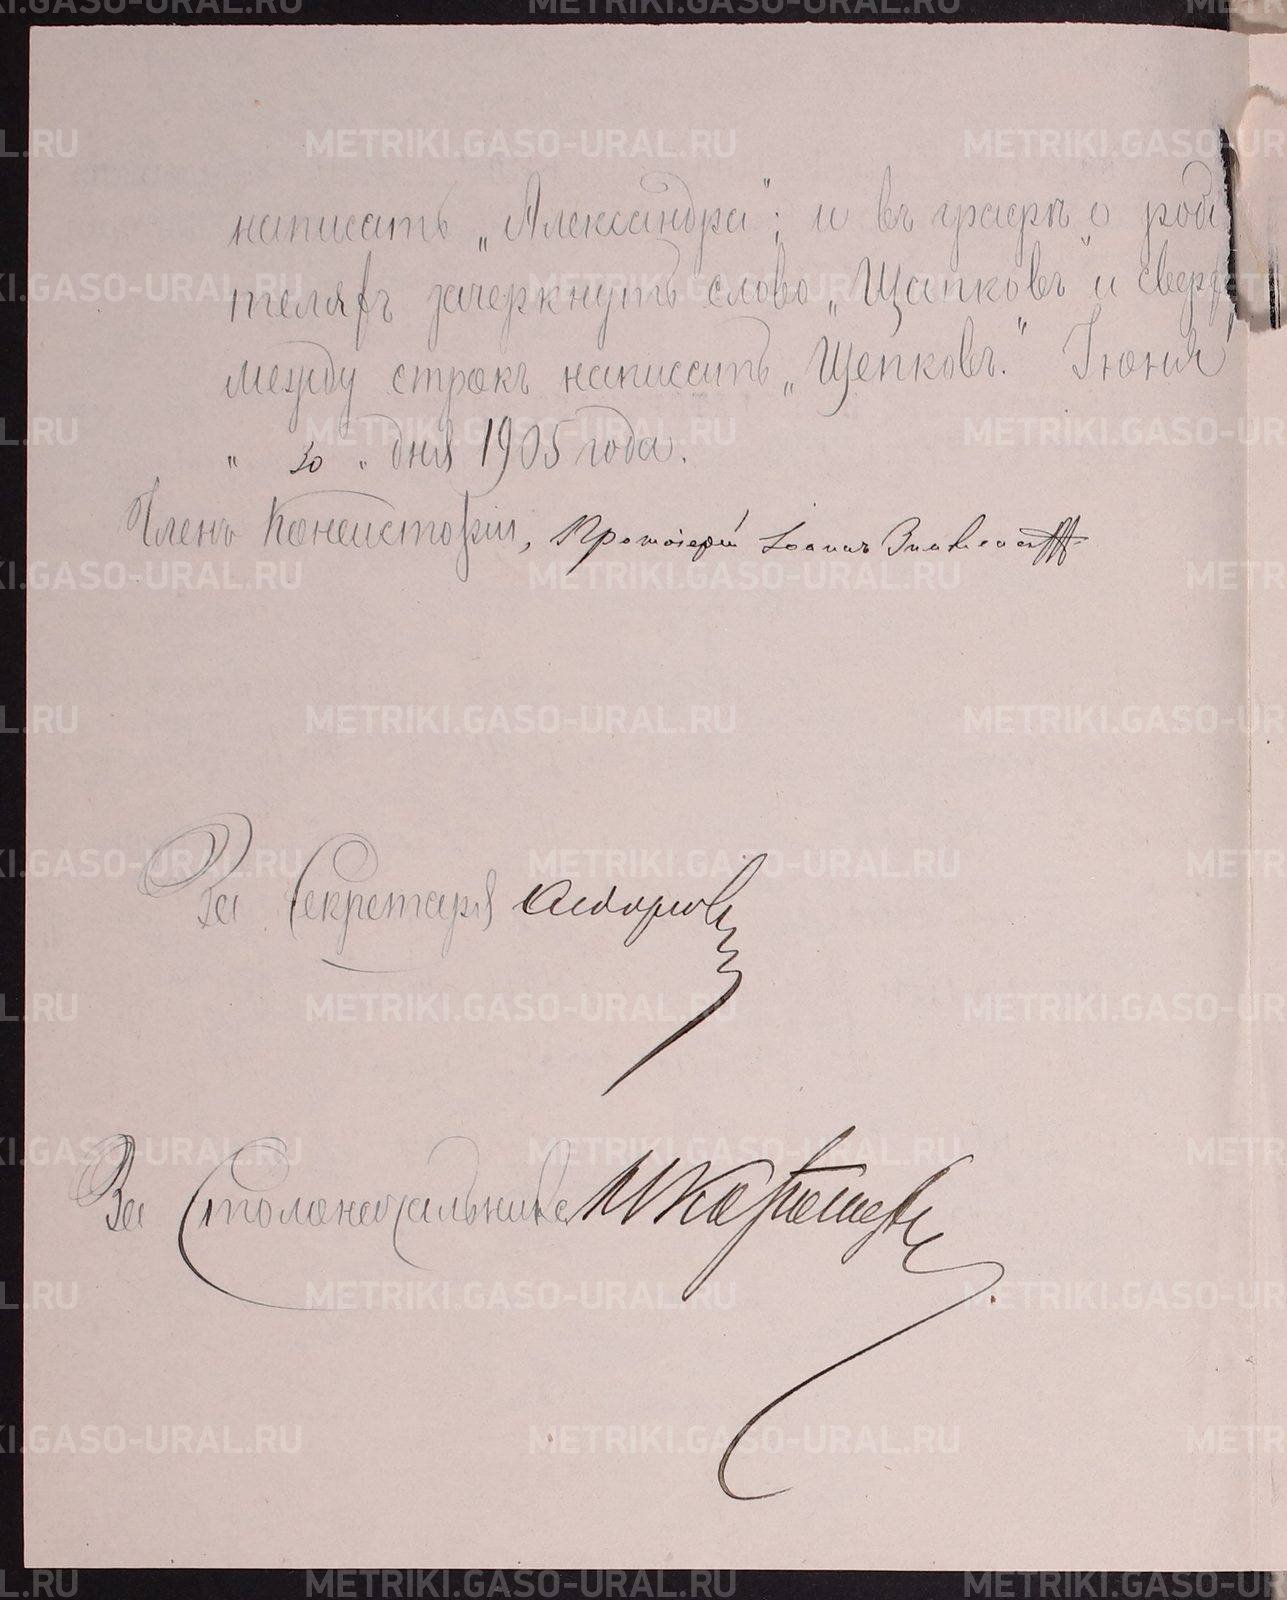 написать „Александра"; и въ графѣ о роди
теляхъ зачеркнуть слово „Щапковъ" и сверху
между строкъ написать „Щепковъ." Іюня
" 30 " дня 1905 года.
Членъ Консисторіи, Протоіерей Іоаннъ
За Секретаря
За Столоначальника